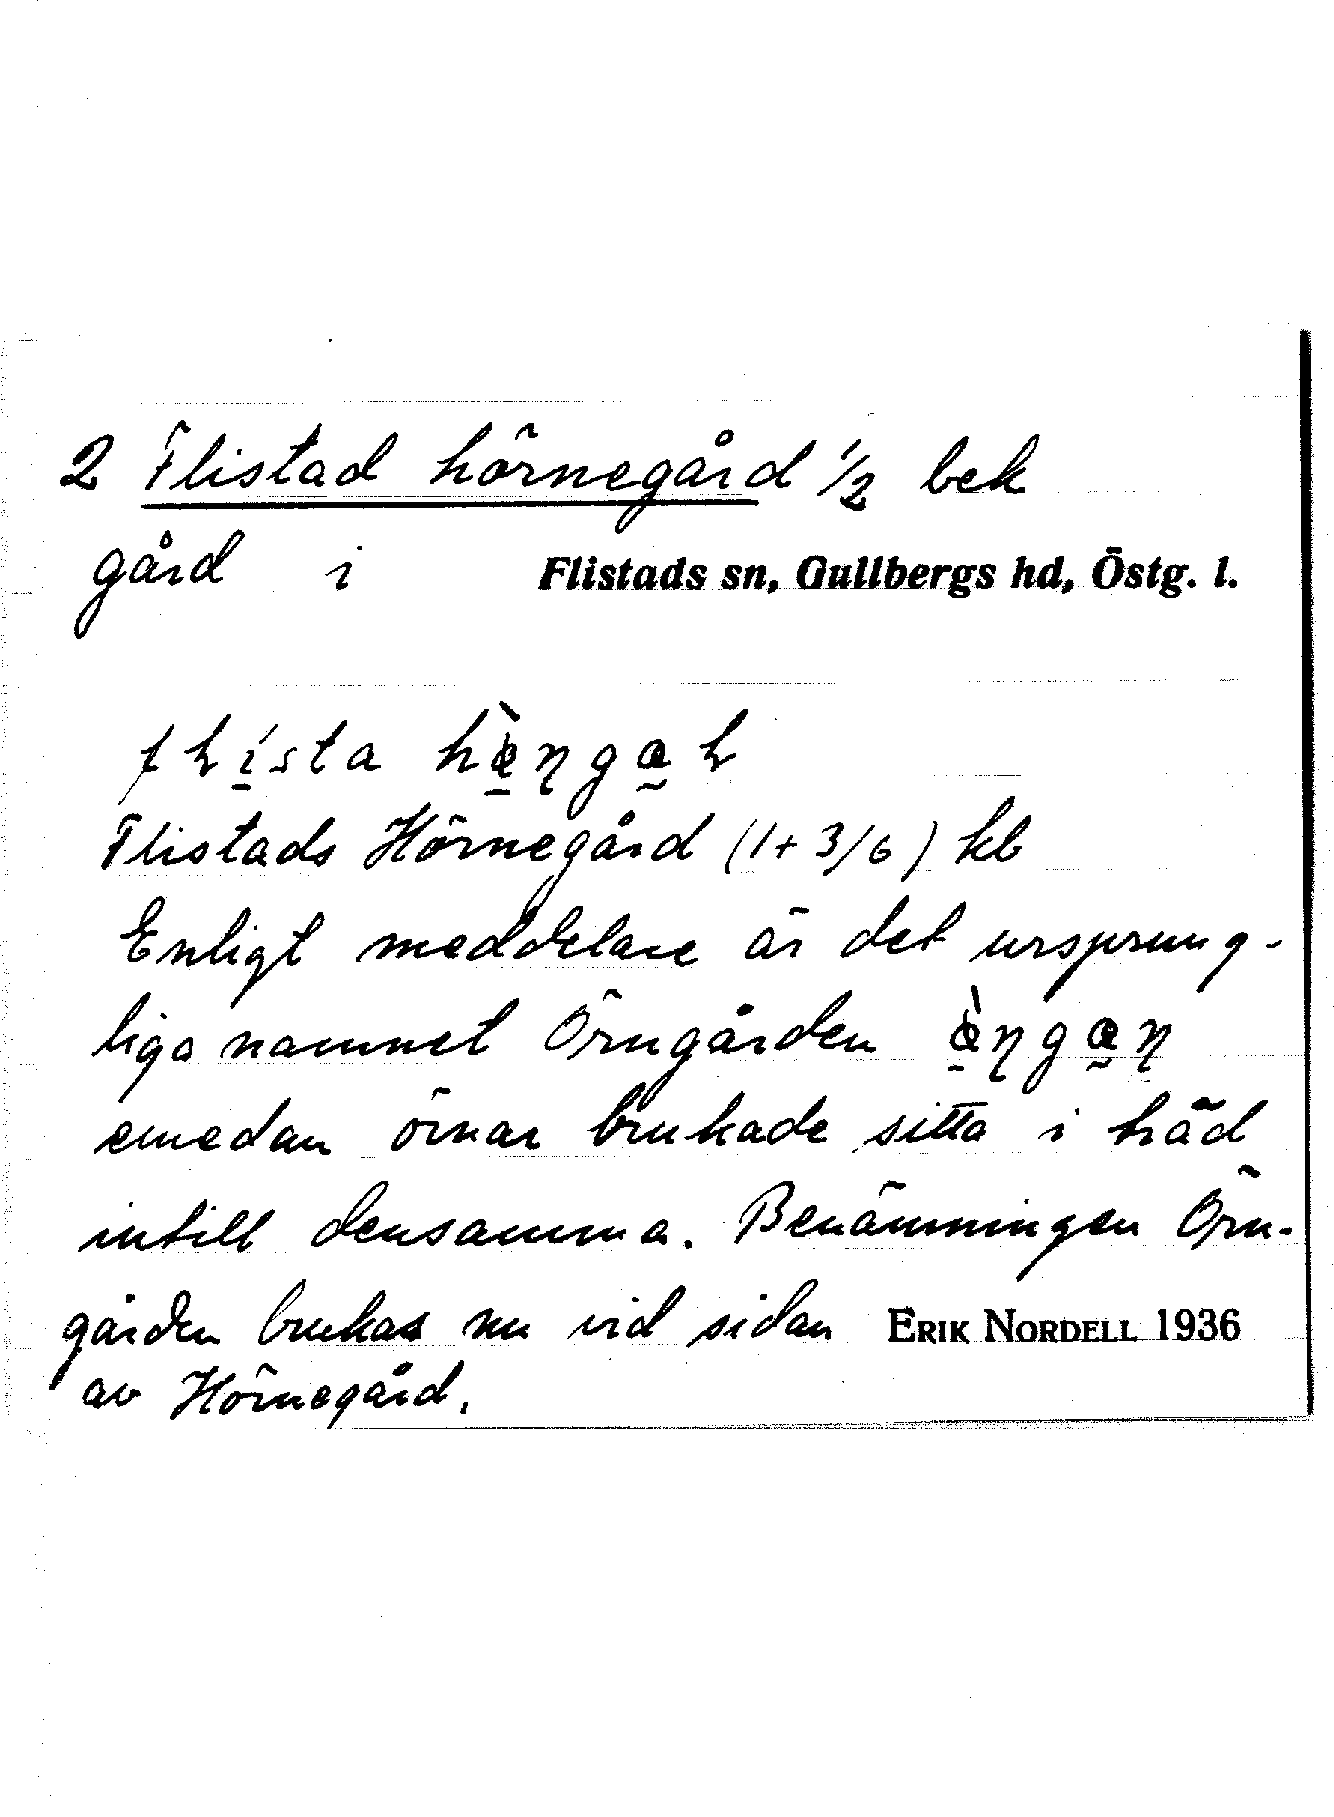 2 Flistad hörnegård 1/2 bek
gård i Flistads sn, Gullbergs hd, Östg. l.
Flistads Hörnegård (1+3/6) kb
Enligt meddelare är det ursprung-
liga namnet Örngården
emedan örnar brukade sitta i träd
intill densamma. Benämningen Örn-
gården brukas nu vid sidan ERIK NORDELL 1936
av Hörnegård.